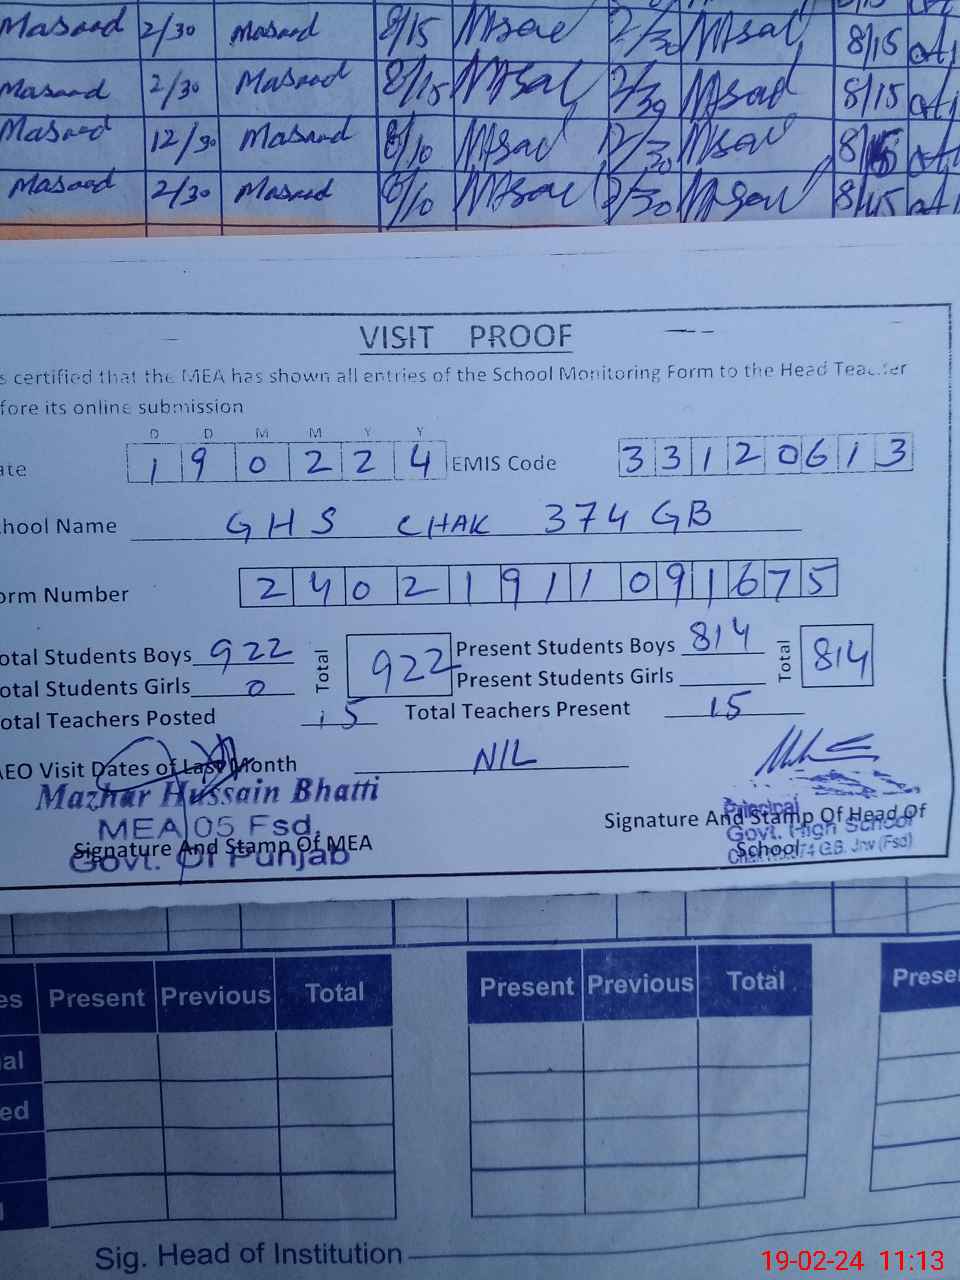 Masood 2/30 Masood 8/15 Msad 2/30 Msad 8/15
Masood 2/30 Masood 8/15 Msad 2/30 Msad 8/15
Masood 12/30 Masood 8/10 Msad 12/30 Msad
Masood 2/30 Masood 8/10 Msad 2/30 Msad 8/15
VISIT PROOF
s certified that the MEA has shown all entries of the School Monitoring Form to the Head Teacher
fore its online submission
D D M M Y Y
ate 190224 EMIS Code 33120613
chool Name GHS CHAK 374 GB
orm Number 24021911091675
otal Students Boys 922 Total 922 Present Students Boys 814 Total 814
otal Students Girls 0 Present Students Girls
otal Teachers Posted 15 Total Teachers Present 15
AEO Visit Dates of Last Month NIL
Mazhar Hussain Bhatti
MEA 05 Fsd.
Govt. Of Punjab
Signature And Stamp Of MEA
Signature And Stamp Of Head Of
School
Principal
Govt. High School
374 G.B. Jnw (Fsd)
es Present Previous Total Present Previous Total Prese
al
ed
Sig. Head of Institution
19-02-24 11:13